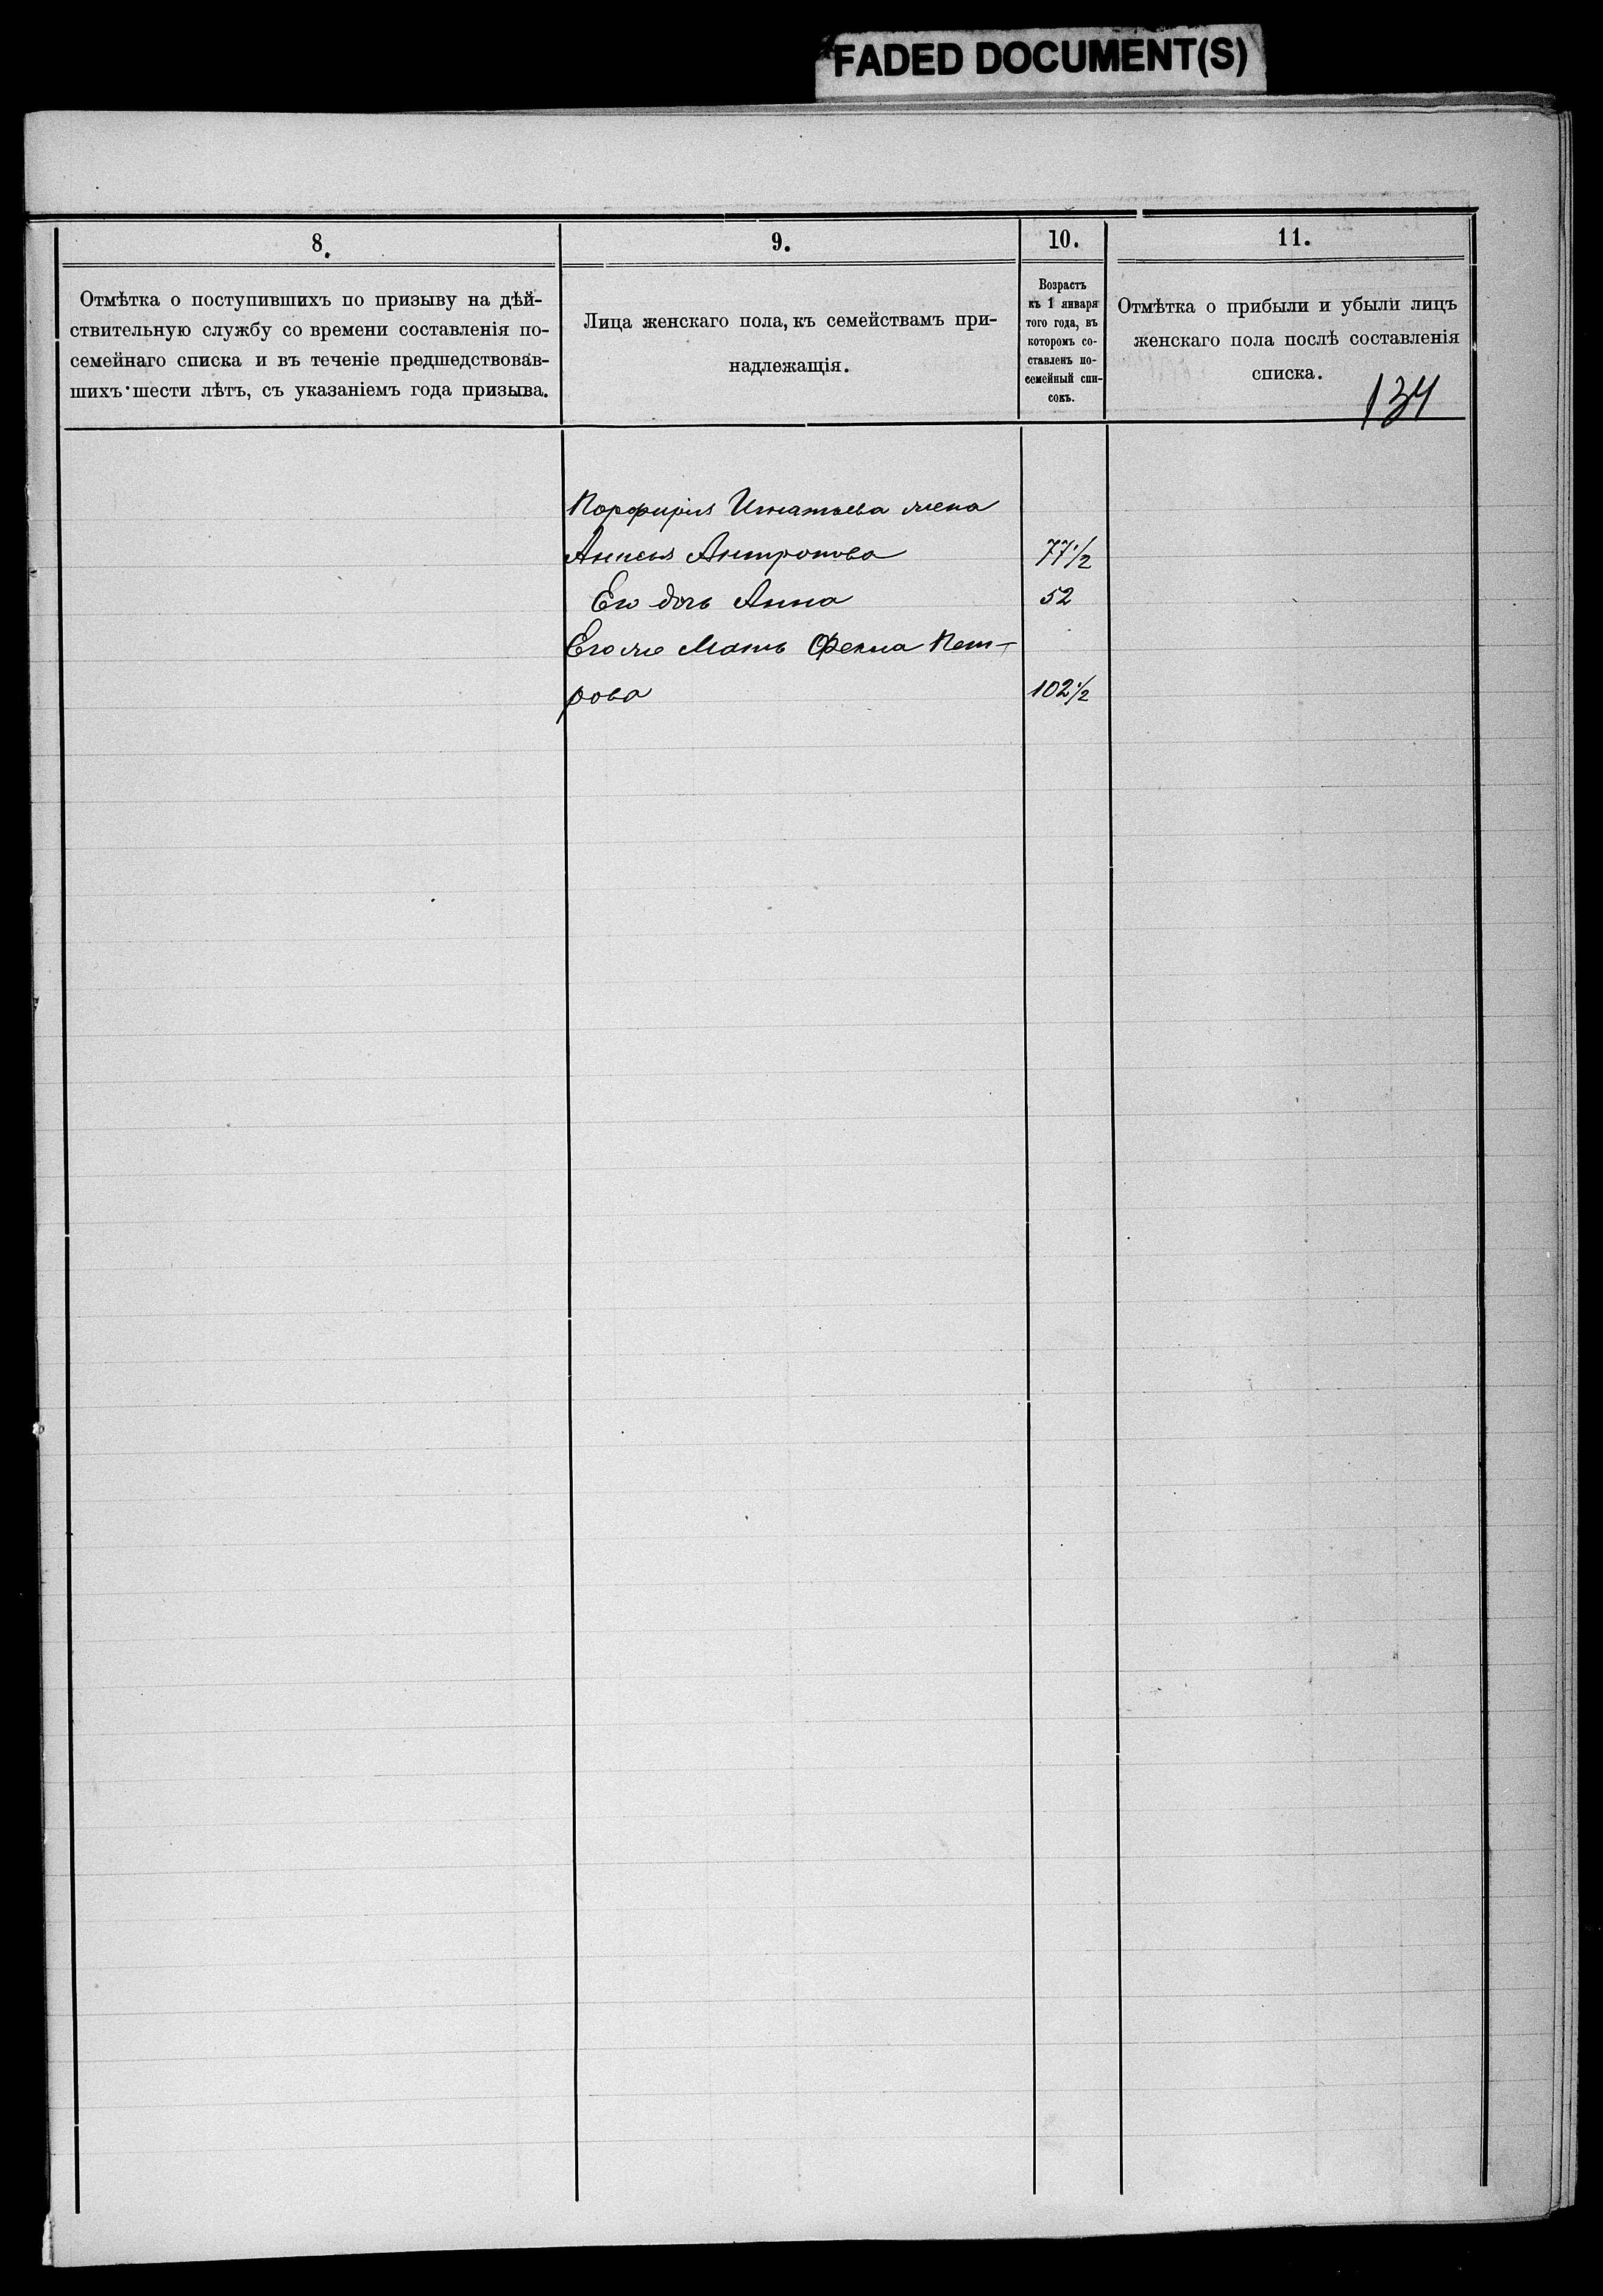 FADED DOCUMENT(S)
8.
Отмѣтка о поступившихъ по призыву на дѣй-
ствительную службу со времени составленія по-
семейнаго списка и въ теченіе предшедствовав-
шихъ шести лѣтъ, съ указаніемъ года призыва.
9.
Лица женскаго пола, къ семействамъ при-
надлежащія.
10.
Возрастъ
къ 1 января
того года, въ
которомъ со-
ставленъ по-
семейный спи-
сокъ.
11.
Отмѣтка о прибыли и убыли лицъ
женскаго пола послѣ составленія
списка.
134
Порфирія Игнатьева жена
Анисья Антропова 77½
Его дочь Анна 52
Его же Мать Фекла Пет-
рова 102½